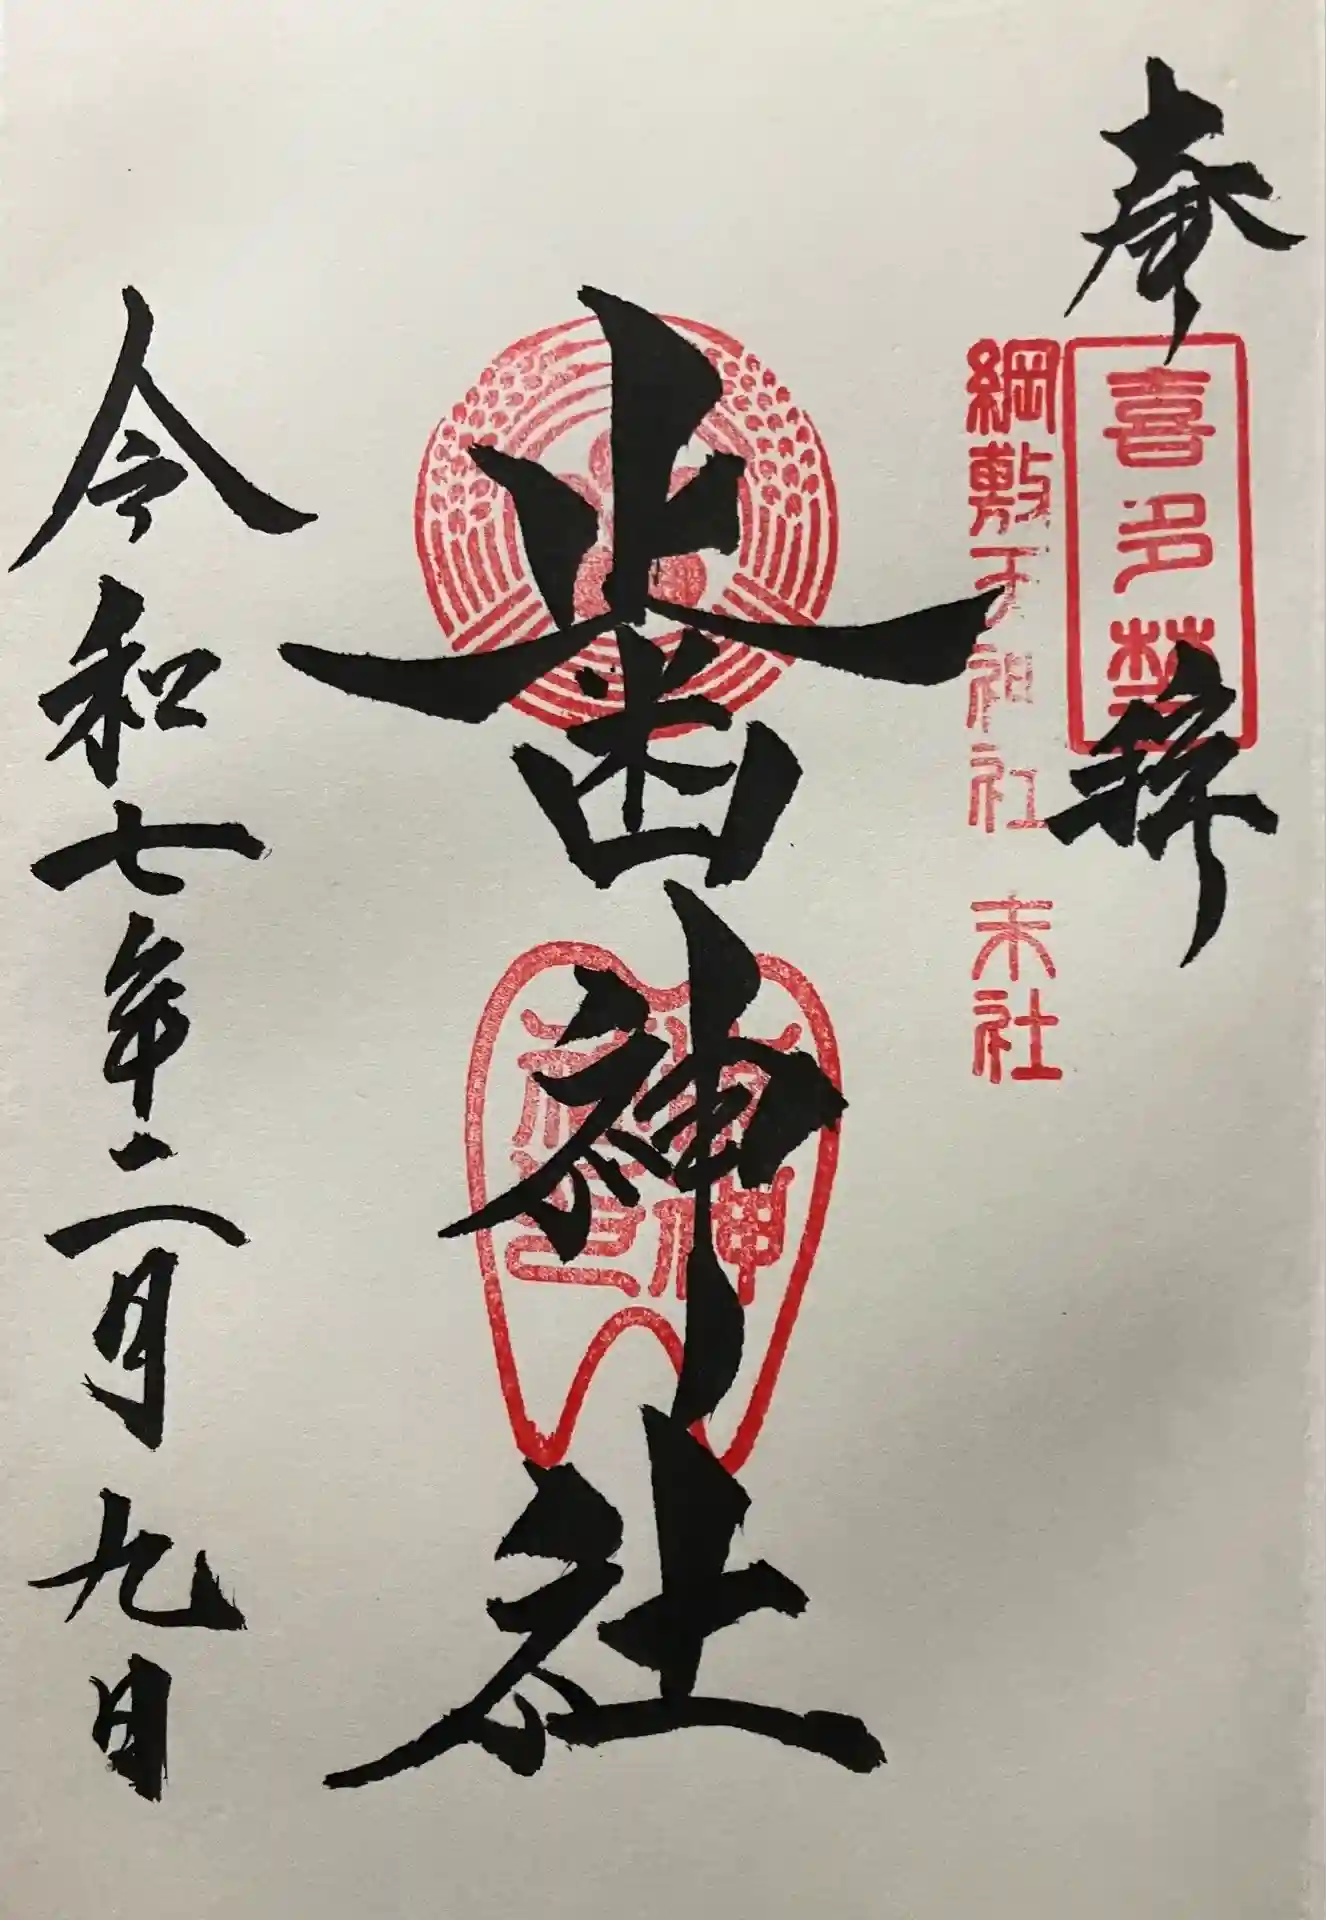 奉拝
喜多埜
綱敷天神社 末社
歯神社
歯神社印
令和七年二月九日